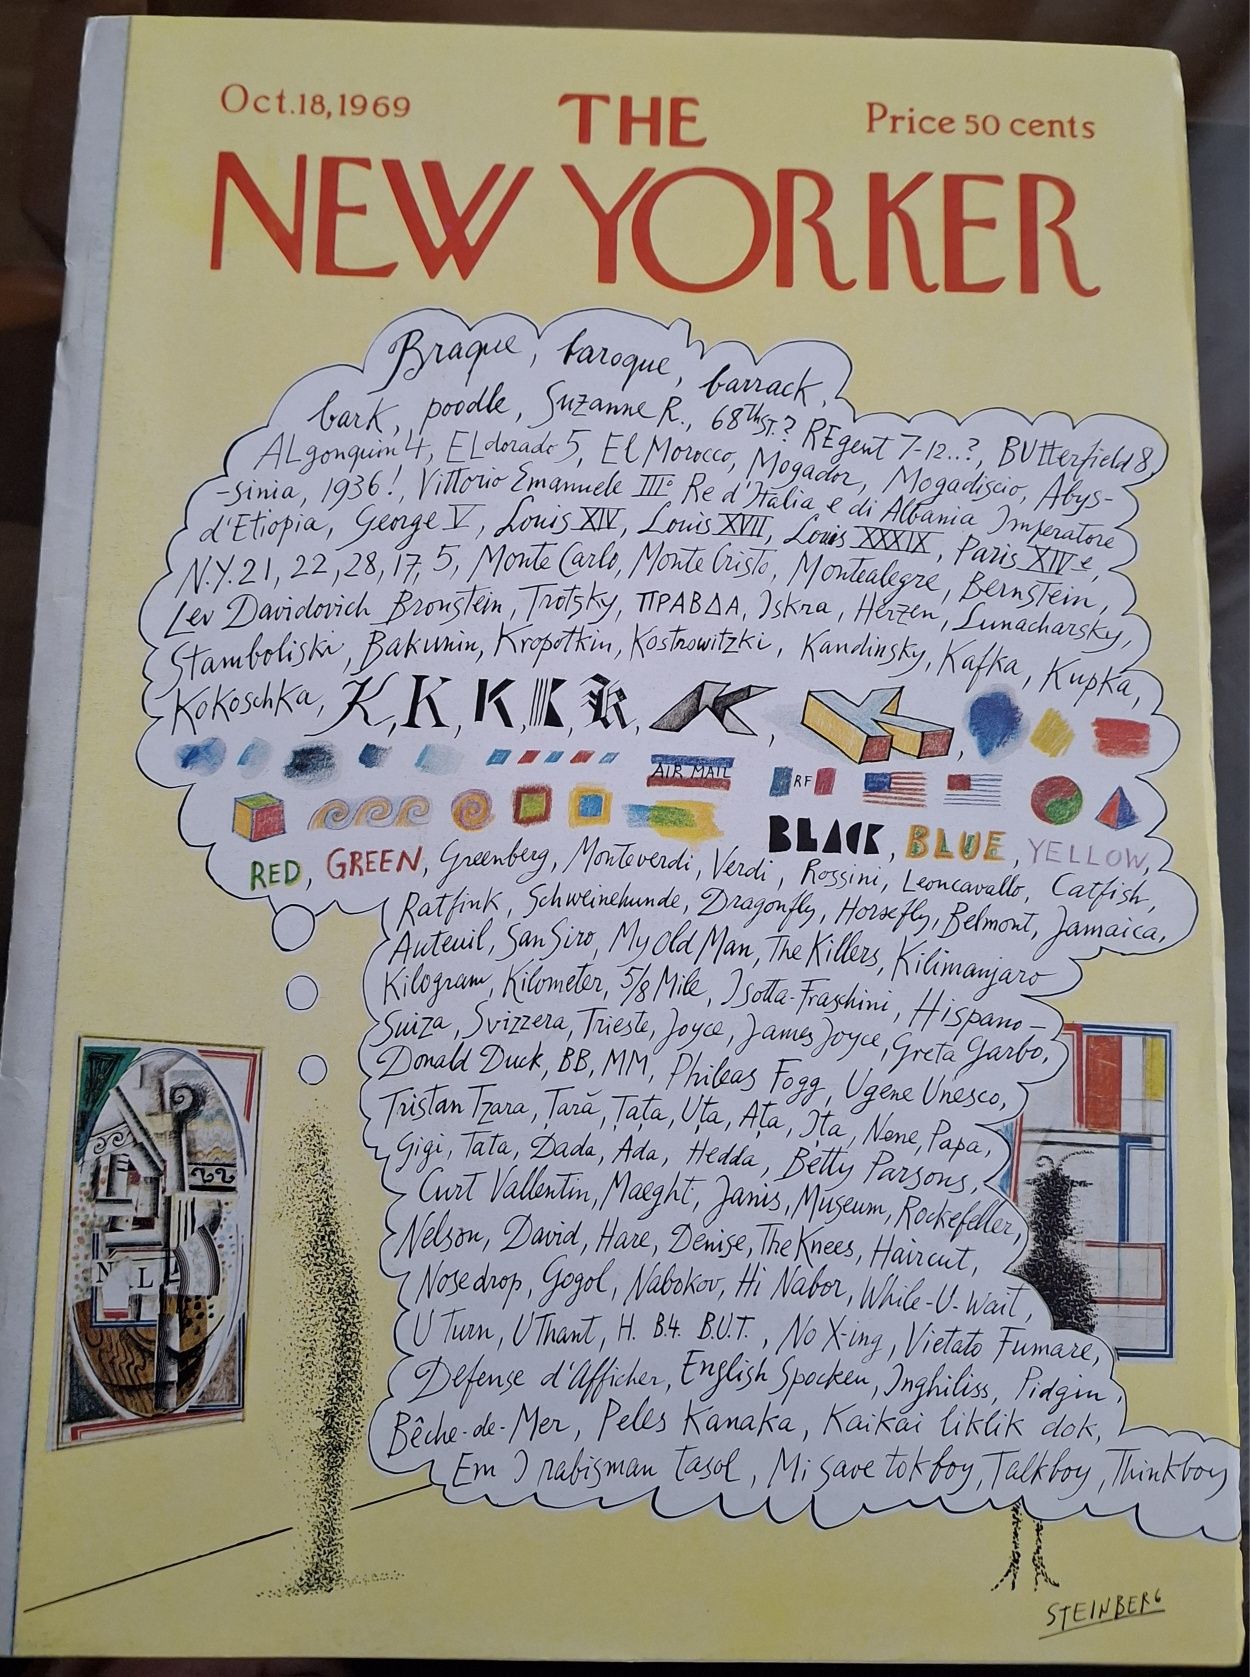 Oct.18,1969
THE
Price 50 cents
NEW YORKER
Braque, baroque, barrack,
bark, poodle, Suzanne R., 68TH ST.? REgent 7-12..?, BUtterfield 8,
ALgonquin 4, ELdorado 5, El Morocco, Mogador, Mogadiscio, Abys-
-sinia, 1936!, Vittorio Emanuele IIIº Re d'Italia e di Albania Imperatore
d'Etiopia, George V, Louis XIV, Louis XVII, Louis XXXIX, Paris XIVe,
N.Y. 21, 22, 28, 17, 5, Monte Carlo, Monte Cristo, Montealegre, Bernstein,
Lev Davidovich Bronstein, Trotsky, ПРАВДА, Iskra, Herzen, Lunacharsky,
Stamboliski, Bakunin, Kropotkin, Kostrowitzki, Kandinsky, Kafka, Kupka,
Kokoschka, K, K, K, K, K, K, K,
AIR MAIL
RF
BLACK, BLUE, YELLOW,
RED, GREEN, Greenberg, Monteverdi, Verdi, Rossini, Leoncavallo, Catfish,
Ratfink, Schweinehunde, Dragonfly, Horsefly, Belmont, Jamaica,
Auteuil, San Siro, My Old Man, The Killers, Kilimanjaro
Kilogram, Kilometer, 5/8 Mile, Isotta-Fraschini, Hispano-
Suiza, Svizzera, Trieste, Joyce, James Joyce, Greta Garbo,
Donald Duck, BB, MM, Phileas Fogg, Ugene Unesco,
Tristan Tzara, Tară, Țața, Uța, Ața, Ița, Nene, Papa,
Gigi, Tata, Dada, Ada, Hedda, Betty Parsons,
Curt Vallentin, Maeght, Janis, Museum, Rockefeller,
Nelson, David, Hare, Denise, The Knees, Haircut,
Nosedrop, Gogol, Nabokov, Hi Nabor, While-U-Wait,
U Turn, U Thant, H. B.4. B.U.T., No X-ing, Vietato Fumare,
Defense d'Afficher, English Spocken, Inghiliss, Pidgin,
Bêche-de-Mer, Peles Kanaka, Kaikai liklik dok,
Em I rabisman tasol, Mi save tokboy, Talkboy, Thinkboy
N L
STEINBERG